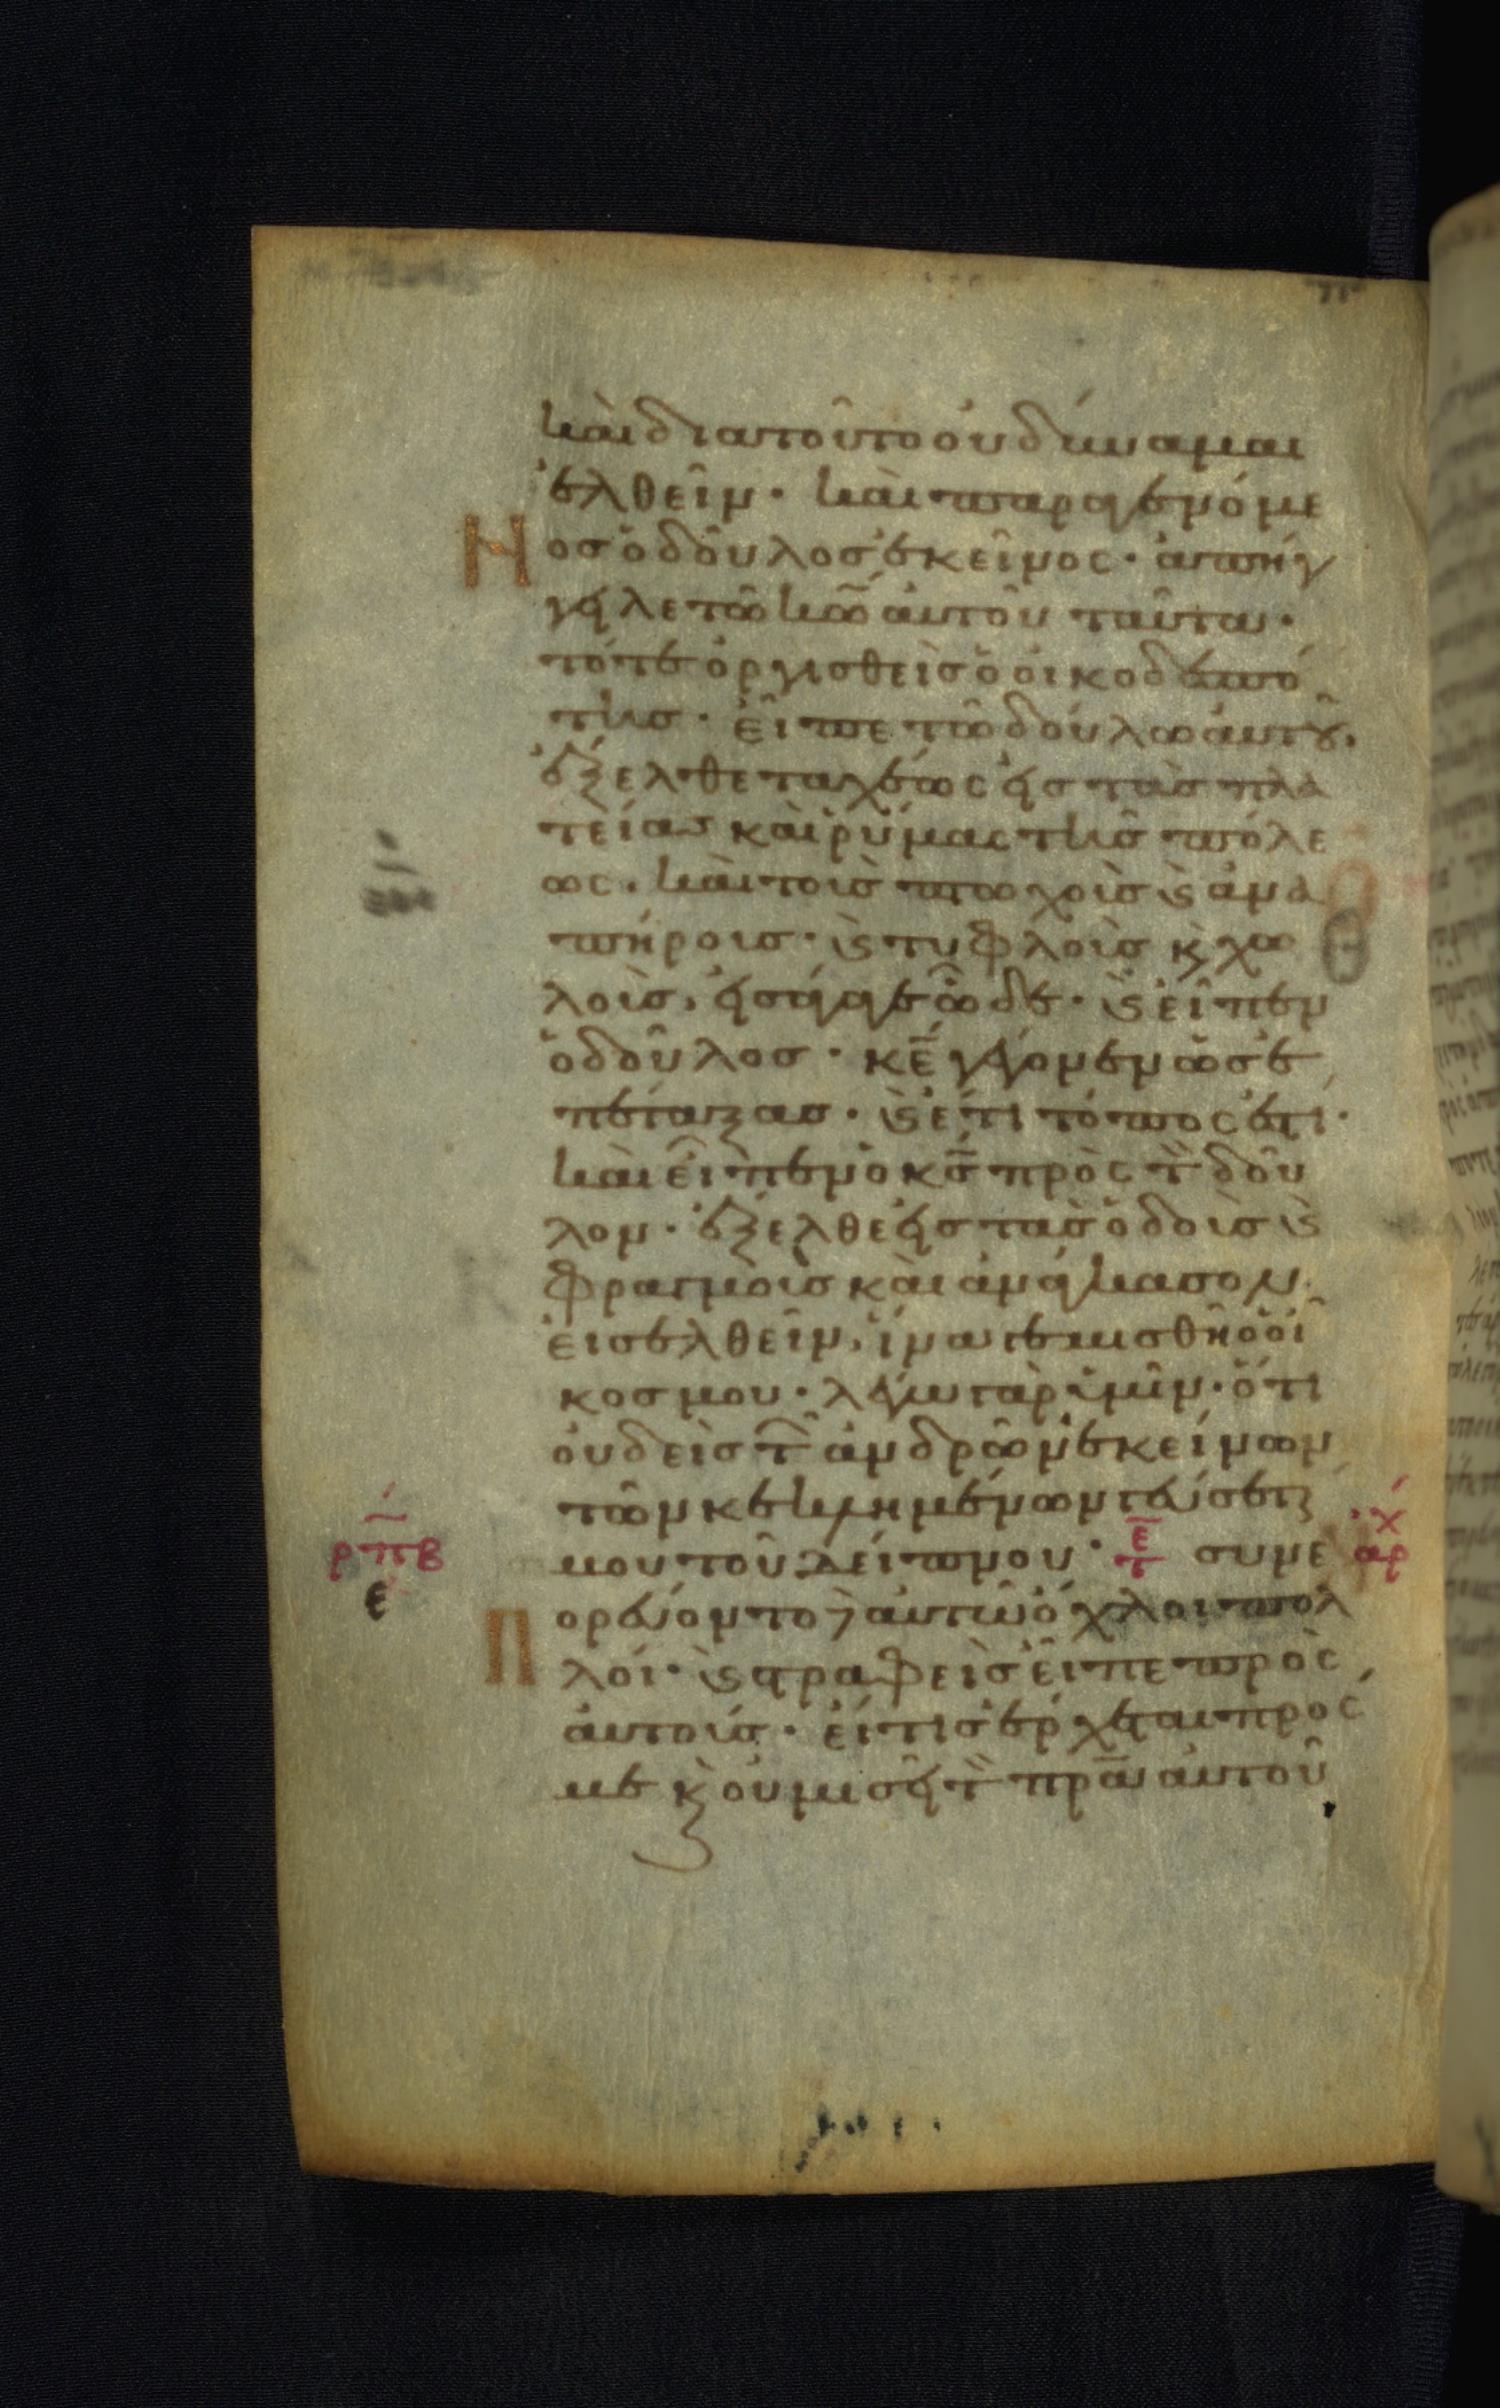 καὶ διατοῦτο οὐ δύναμαι
ἐλθεῖν· καὶ παραγενόμε
νοσ ὁ δοῦλοσ ἐκεῖνος· ἀπήγ
γειλε τῶ κω̅ ἀυτοῦ ταῦτα·
τότε ὀργισθεὶσ ὁ οἰκοδεσπό
τησ· εἶπε τῶ δούλω ἀυτοῦ,
ἔξελθε ταχέως εἰσ τὰσ πλα
τείασ καὶ ῥύμας τῆσ πόλε
ως. καὶ τοὺσ πτωχοὺσ ϗ ἀνα
πήρουσ· ϗ τυφλοὺσ ϗ χω
λοὺσ, εἰσάγαγε ὧδε· ϗ εἶπεν
ὁ δοῦλοσ· κε̅ γέγονεν ὡσ ἐ
πέταξασ· ϗ ἔτι τόπος ἐστί·
καὶ εἶπεν ὁ κσ̅ πρὸς τὸν δοῦ
λον· ἔξελθε εἰσ τὰσ ὁδοὺσ ϗ
φραγμοὺσ καὶ ἀνάγκασον
εἰσελθεῖν, ἵνα γεμισθῆ ὁ οἶ
κοσ μου· λέγω γὰρ ὑμῖν· ὅτι
οὐδεὶσ τῶν ἀνδρῶν ἐκείνων
τῶν κεκλημένων γεύσεταί
μου τοῦ δείπνου· τε συνε
πορεύοντο ἀυτῶ ὄχλοι πολ
λοί· ϗ στραφεὶσ εἶπε πρὸς
ἀυτούσ· εἴ τισ ἔρχεται πρός
με ϗ οὐ μισεῖ τὸν πρα̅ ἀυτοῦ
ρπβ
ε
αρχ
Θ